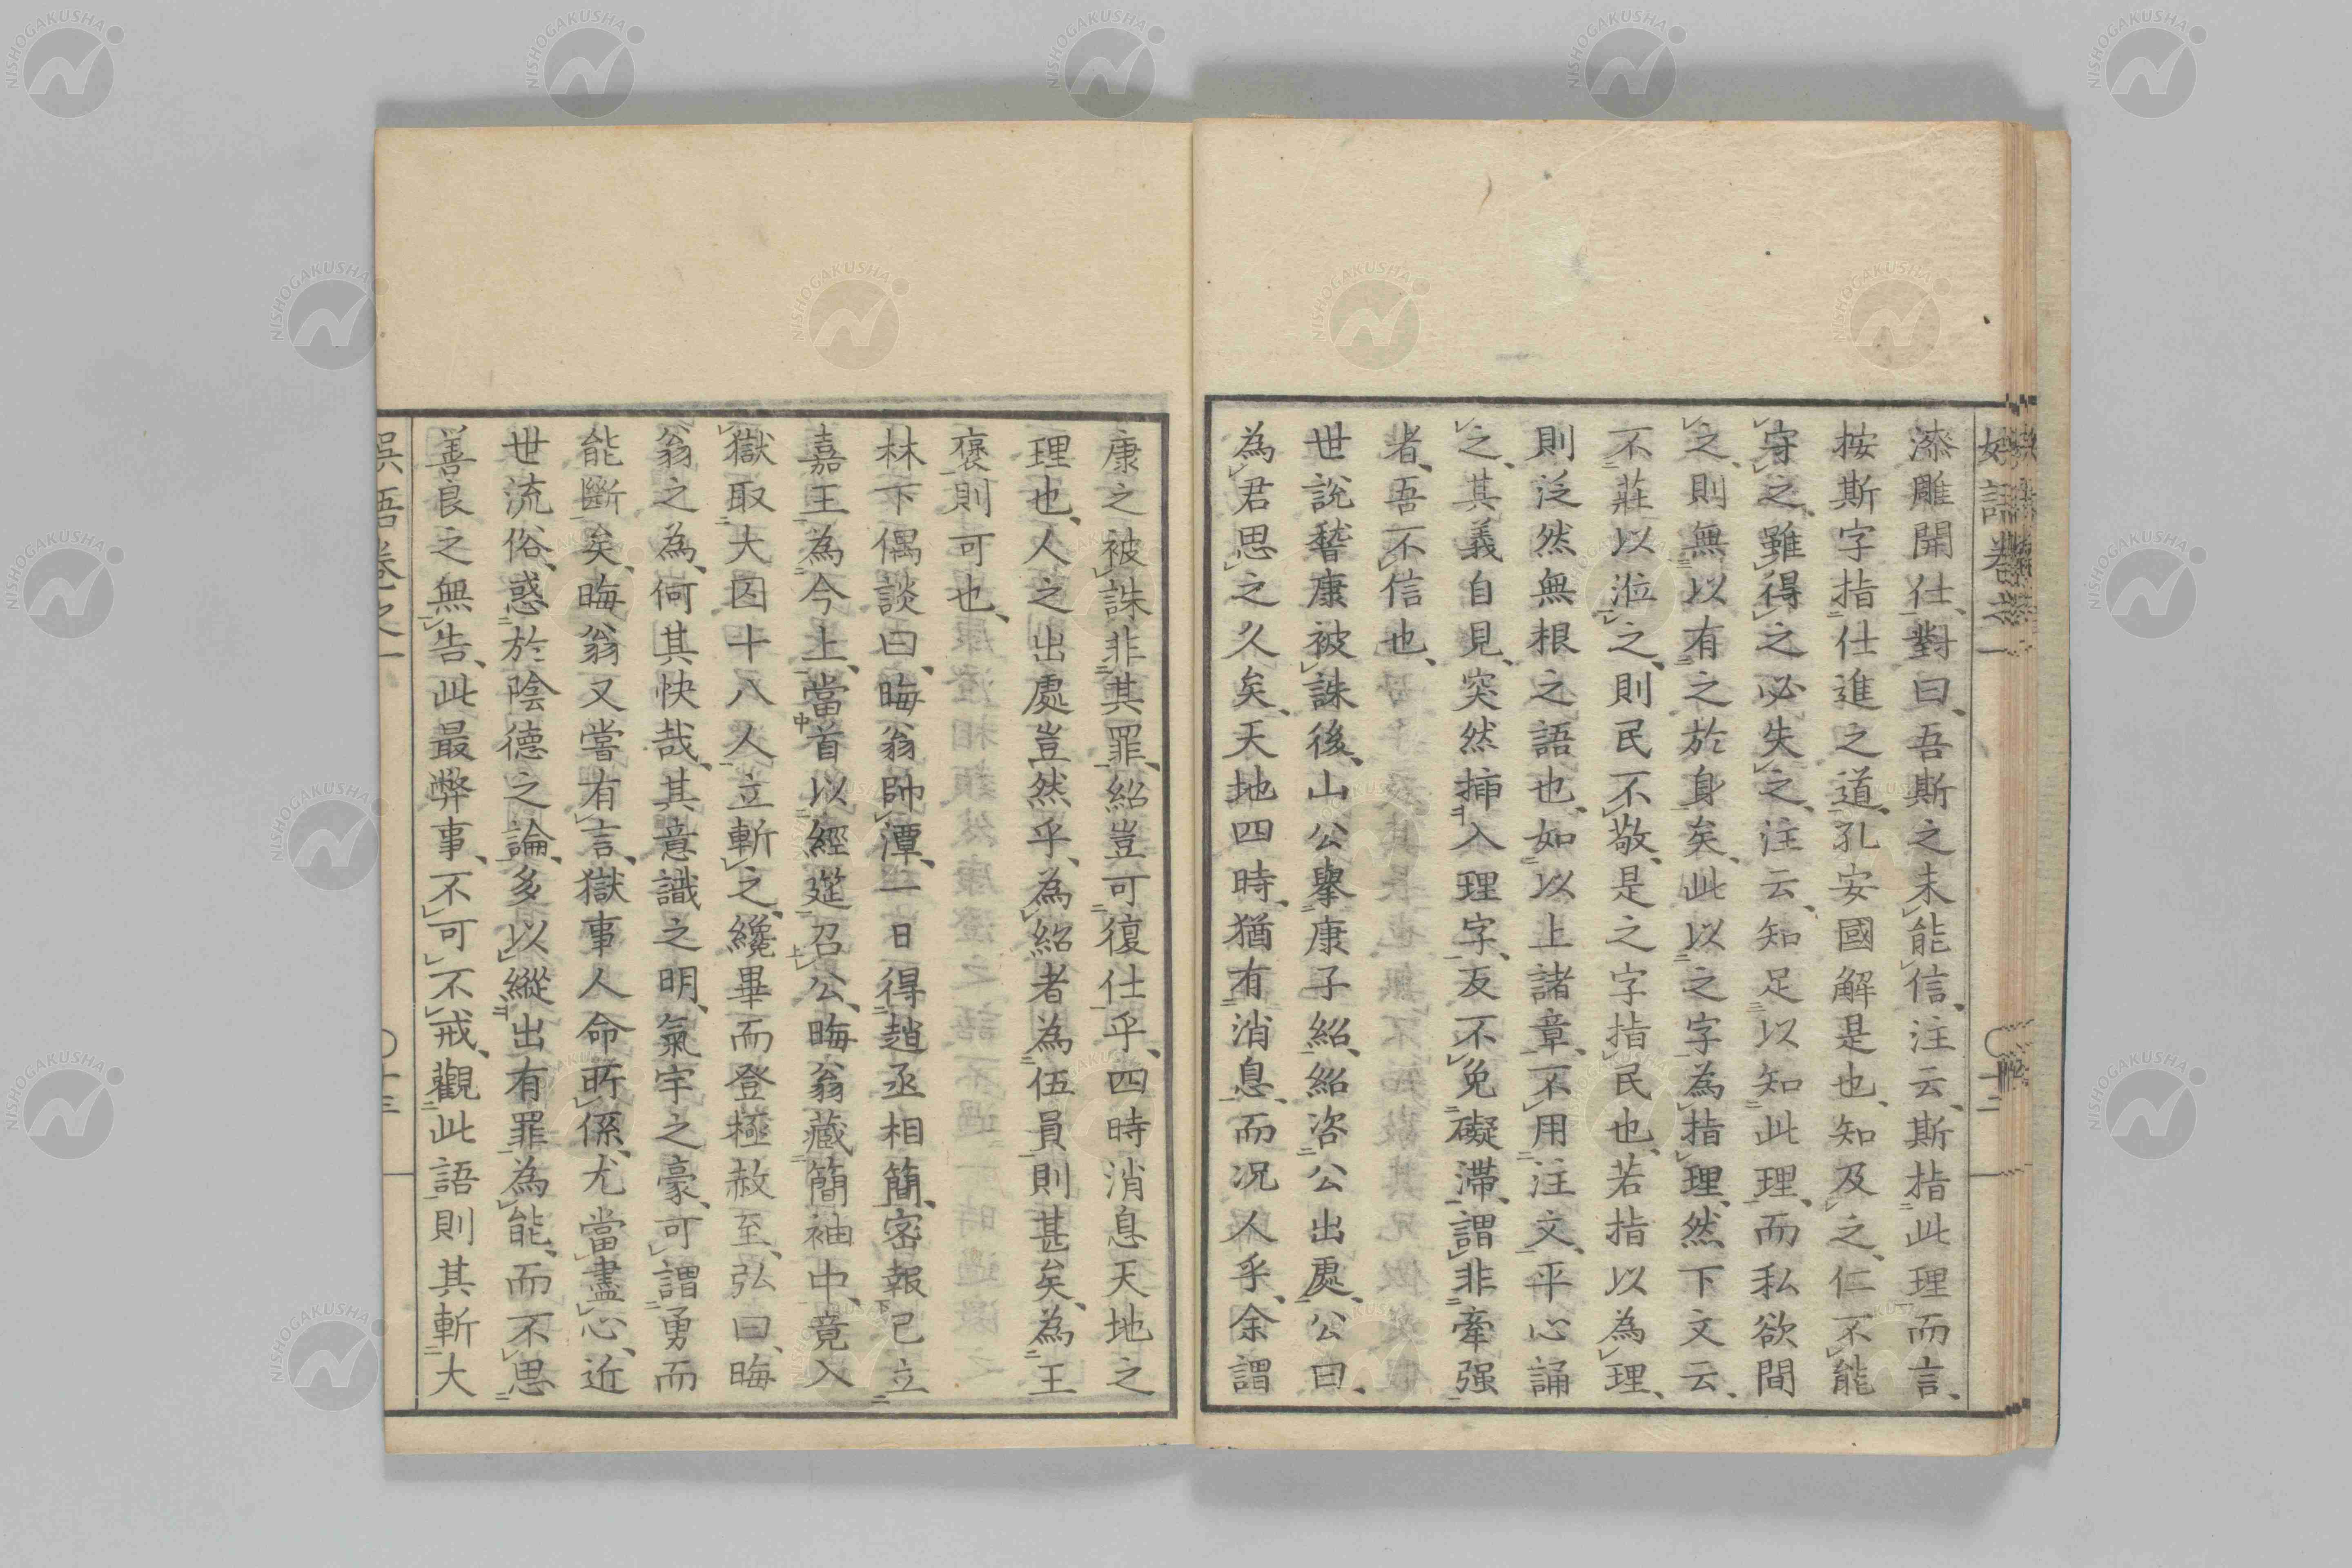 漆雕開仕、對曰、吾斯之未能信、注云、斯指此理而言、
按斯字指仕進之道、孔安國解是也、知及之、仁不能
守之、雖得之必失之、注云、知足以知此理、而私欲間
之、則無以有之於身矣、此以之字為指理、然下文云、
不莊以涖之、則民不敬、是之字指民也、若指以為理、
則泛然無根之語也、如以上諸章、不用注文、平心誦
之、其義自見、突然挿入理字、反不免礙滯、謂非牽强
者、吾不信也、
世說嵇康被誅後、山公擧康子紹、紹咨公出處、公曰、
為君思之久矣、天地四時、猶有消息、而況人乎、余謂
康之被誅非其罪、紹豈可復仕乎、四時消息天地之
理也、人之出處豈然乎、為紹者為伍員則甚矣、為王
褒則可也、
林下偶談曰、晦翁帥潭、一日得趙丞相簡、密報已立
嘉王為今上、當首以經筵召公、晦翁藏簡袖中、竟入
獄取大囚十八人立斬之、纔畢而登極赦至、弘曰、晦
翁之為、何其快哉、其意識之明、氣宇之豪、可謂勇而
能斷矣、晦翁又嘗有言、獄事人命所係、尤當盡心、近
世流俗、惑於陰德之論、多以縱出有罪為能、而不思
善良之無告、此最弊事、不可不戒、觀此語則其斬大
語卷之一
〇十二
吳語卷之一
〇十三
NISHOGAKUSHA